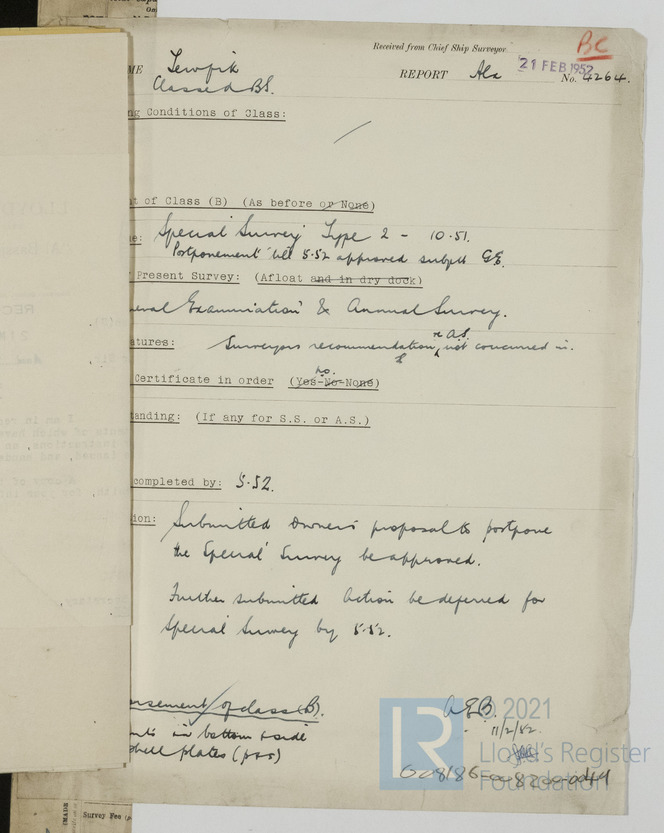 Received from Chief Ship Surveyor
BC
ME Tewfik
REPORT Alx 21 FEB 1952 No. 4264.
Classed BS.
ng Conditions of Class:
t of Class (B) (As before or None)
e: Special Survey Type 2 - 10.51.
Postponement till 5.52 approved subject GE.
Present Survey: (Afloat and in dry dock)
eral Examination & Annual Survey.
re A.S.
atures: Surveyors recommendation, not concurred in.
no.
Certificate in order (Yes-No-None)
anding: (If any for S.S. or A.S.)
completed by: 5.52.
ion: Submitted Owners proposal to postpone
the Special Survey be approved.
Further submitted Action be deferred for
Special Survey by 5.52.
rsement of class (B).
AEB.
11/2/52.
nts in bottom & side
shell plates (p&s)
© 2021
Lloyd's Register
Foundation
LR
008186-008200-0049
Survey Fee
(MADE